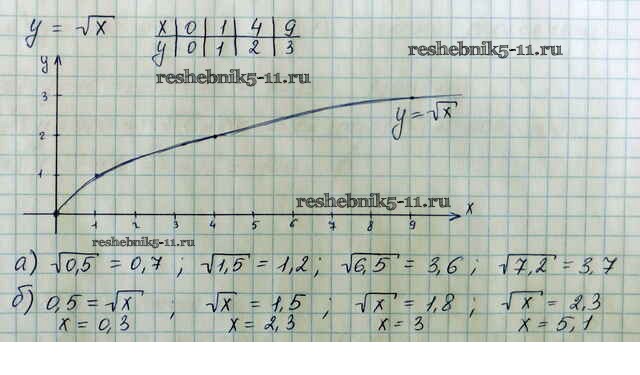 y = √x
x 0 1 4 9
y 0 1 2 3
reshebnik5-11.ru
reshebnik5-11.ru
y
3
2
1
y = √x
reshebnik5-11.ru
x
1 2 3 4 5 6 7 8 9
reshebnik5-11.ru
а) √0,5 = 0,7 ; √1,5 = 1,2 ; √6,5 = 3,6 ; √7,2 = 3,7
б) 0,5 = √x ; √x = 1,5 ; √x = 1,8 ; √x = 2,3
x = 0,3 x = 2,3 x = 3 x = 5,1